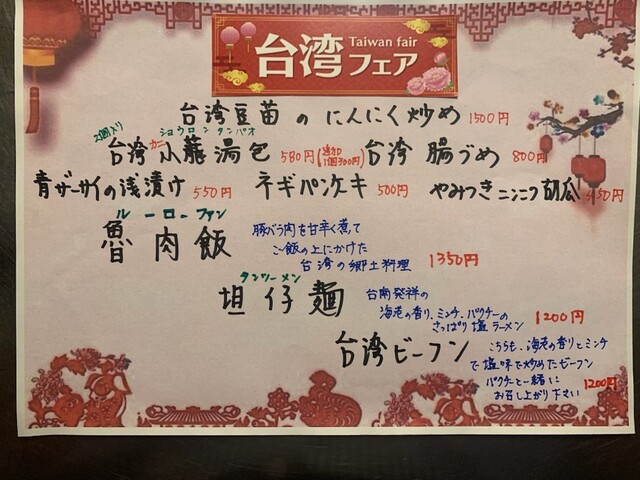 台湾フェア Taiwan fair
台湾豆苗のにんにく炒め 1500円
2個入り ショウロンタンパオ
台湾カニ小籠湯包 580円(追加1個300円) 台湾腸づめ 800円
青ザーサイの浅漬け 550円 ネギパンケーキ 500円 やみつきニンニク胡瓜 450円
ルーローファン
魯肉飯 豚バラ肉を甘辛く煮て
ご飯の上にかけた
台湾の郷土料理 1350円
タンツーメン
坦仔麺 台南発祥の
海老の香り、ミンチ、パクチーの
さっぱり塩ラーメン 1200円
台湾ビーフン こちらも、海老の香りとミンチ
で塩味で炒めたビーフン
パクチーと一緒に
お召し上がり下さい 1200円